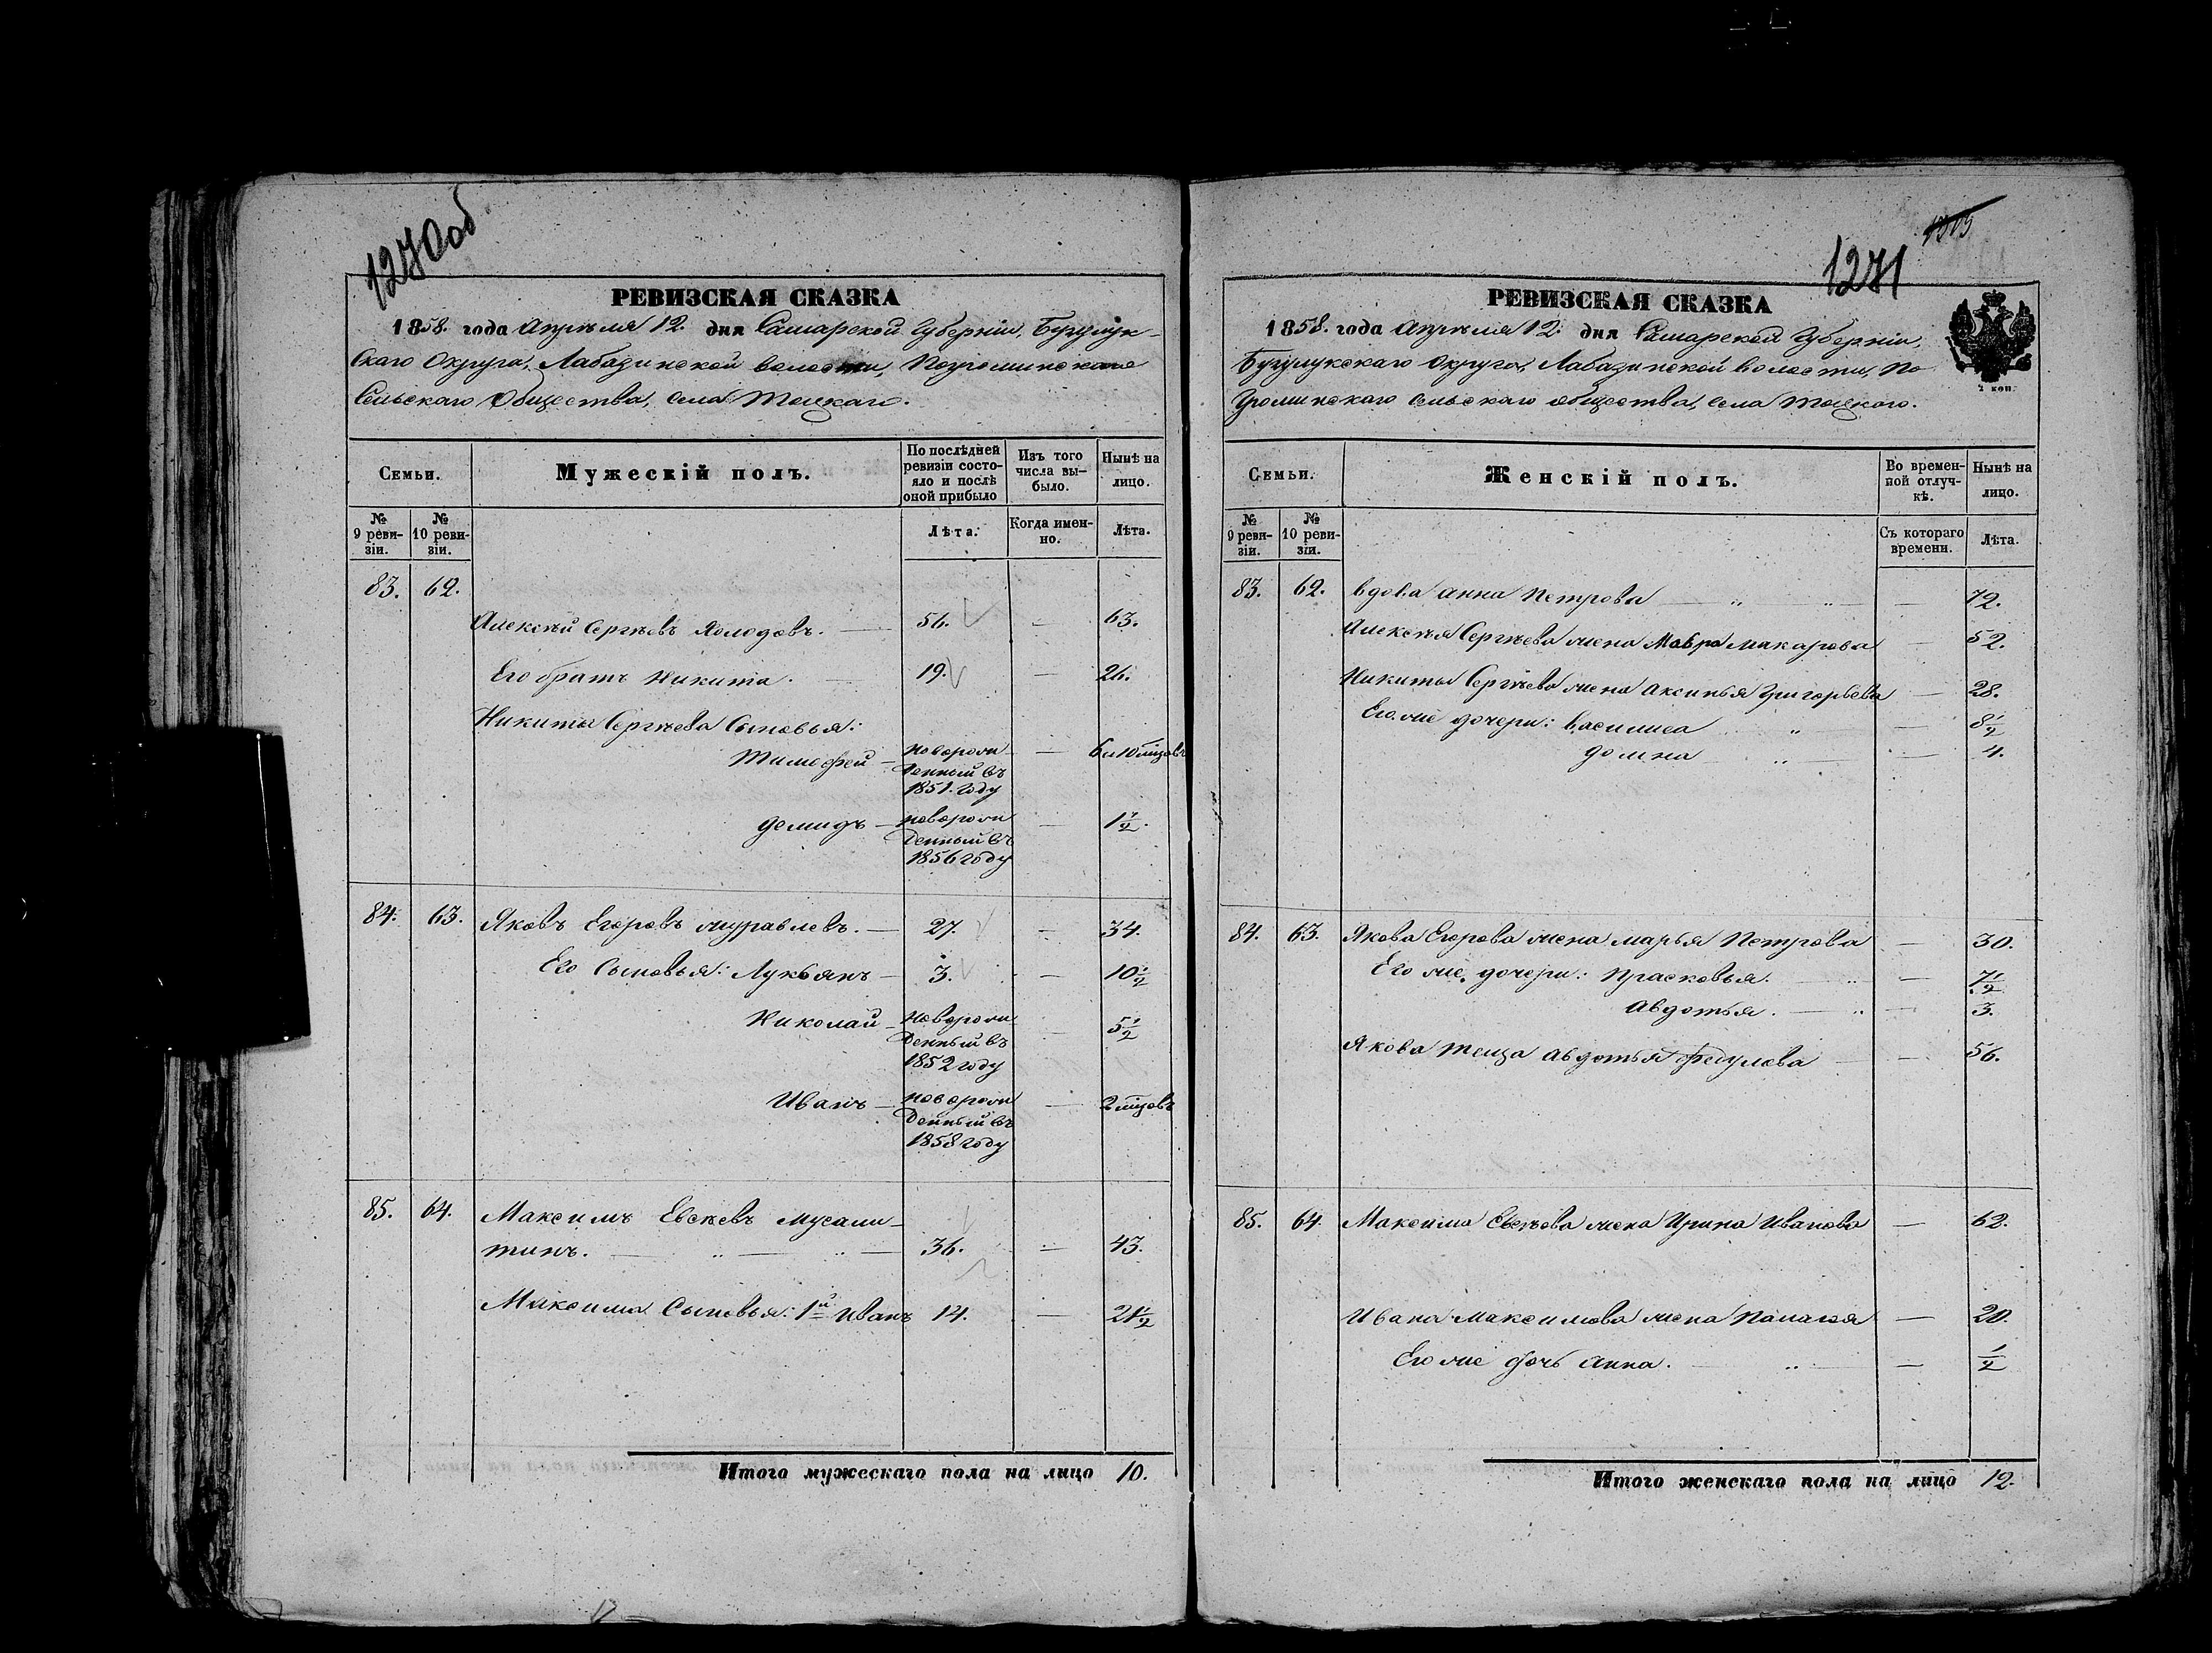 1270об
РЕВИЗСКАЯ СКАЗКА
1858. года Апрѣля 12. дня Самарской Губерніи, Бузулук-
скаго Округа, Лабазинской волости, Погроминскаго
Сельскаго Общества, села Тоцкаго.
Семьи.
Мужескій полъ.
По послѣдней ревизіи состо-яло и послѣ оной прибыло
Изъ того числа вы-было.
Нынѣ на лицо.
№ 9 реви-зіи.
№ 10 реви-зіи.
Лѣта.
Когда имен-но.
Лѣта.
83. 62.
Алексѣй Сергѣевъ Холодовъ. — 56. — 63.
Его братъ Никита. — 19. — 26.
Никиты Сергѣева Сыновья:
Тимофей — новорож- — 6 и 10 мцовъ
денный въ
1851. году
Демидъ — новорож — 1 1/2.
денный въ
1856 году
84. 63. Яковъ Егоровъ Журавлевъ. — 27. — 34.
Его Сыновья: Лукьянъ — 3. — 10 1/2
Николай — новорож — 5 1/2
денный въ
1852 году
Иванъ — новорож — 2 мцовъ
денный въ
1858 году
85. 64. Максимъ Евсѣевъ Мусали-
тинъ. — „ — „ — 36. — 43.
Максима Сыновья: 1й Иванъ 14. — 21 1/2
Итого мужескаго пола на лицо 10.
1271
РЕВИЗСКАЯ СКАЗКА
1858. года Апрѣля 12. дня Самарской Губерніи,
Бузулукскаго Округа, Лабазинской волости, По
громинскаго сельскаго общества, села Тоцкого.
2 коп.
Семьи.
Женскій полъ.
Во времен-ной отлуч-кѣ.
Нынѣ на лицо.
№ 9 реви-зіи.
№ 10 реви-зіи.
Съ котораго времени.
Лѣта.
83. 62. вдова Анна Петрова — „ „ — 72.
Алексѣя Сергѣева жена Мавра Макарова — 52.
Никиты Сергѣева жена Аксинья Григорьева — 28.
Его же дочери: Василиса „ — 8 1/2
Домна „ — 4.
84. 63. Якова Егорова жена Марья Петрова — 30.
Его же дочери: Прасковья. „ — 7 1/2
Авдотья. — „ — 3.
Якова теща Авдотья Федулова — 56.
85. 64 Максима Евсѣева жена Ирина Иванова — 62.
Ивана Максимова жена Палагея — 20.
Его же дочь Анна. — „ — 1/2
Итого женскаго пола на лицо 12.